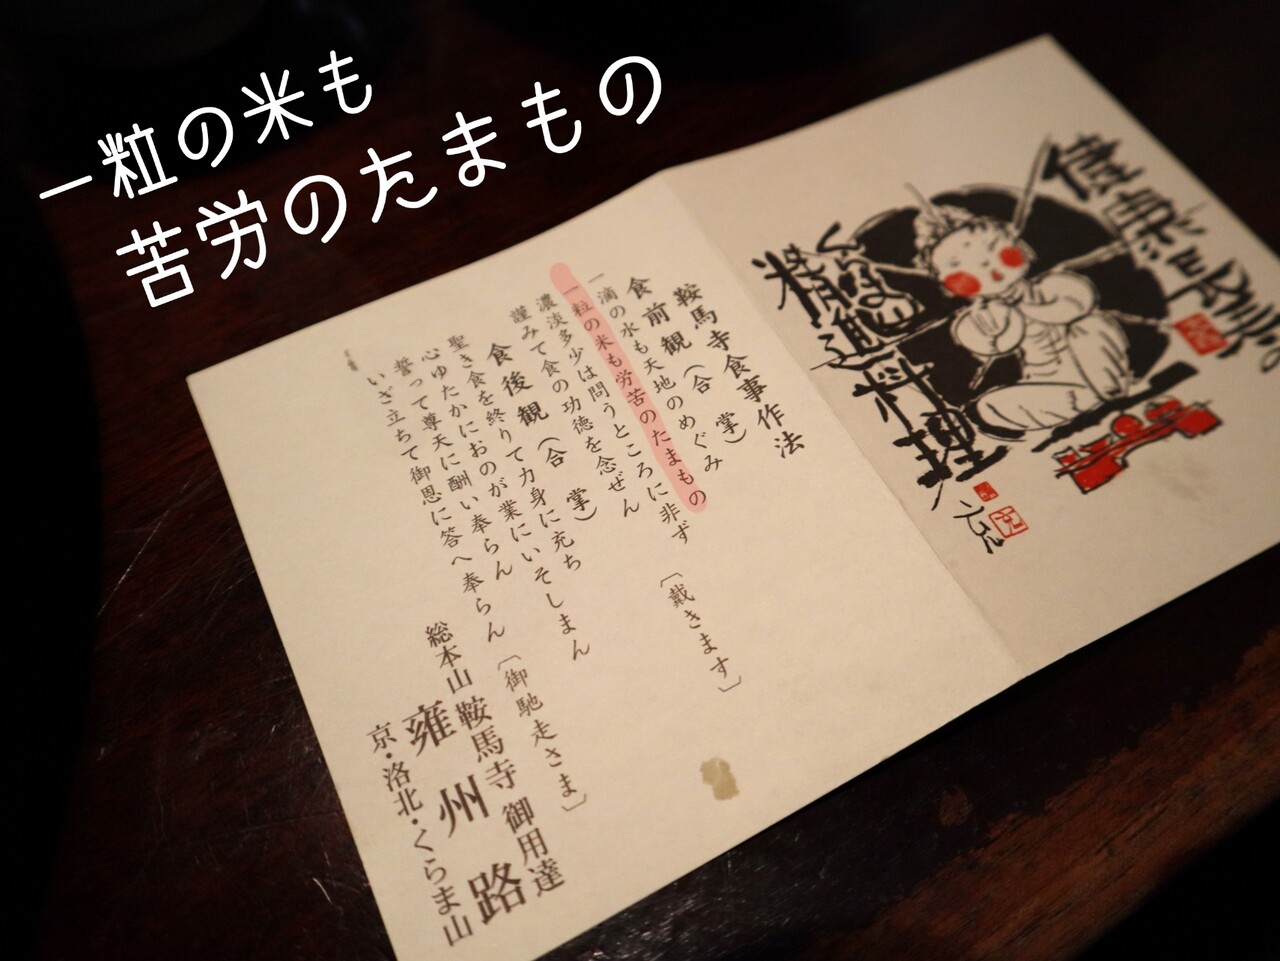 一粒の米も
苦労のたまもの
健康長寿。
くらま
精進料理
鞍馬寺食事作法
食前観（合 掌）
一滴の水も天地のめぐみ
一粒の米も労苦のたまもの
濃淡多少は問うところに非ず
謹みて食の功徳を念ぜん 〔戴きます〕
食後観（合 掌）
聖き食を終りて力身に充ち
心ゆたかにおのが業にいそしまん
誓って尊天に酬い奉らん
いざ立ちて御恩に答へ奉らん 〔御馳走さま〕
総本山 鞍馬寺 御用達
雍州路
京・洛北・くらま山